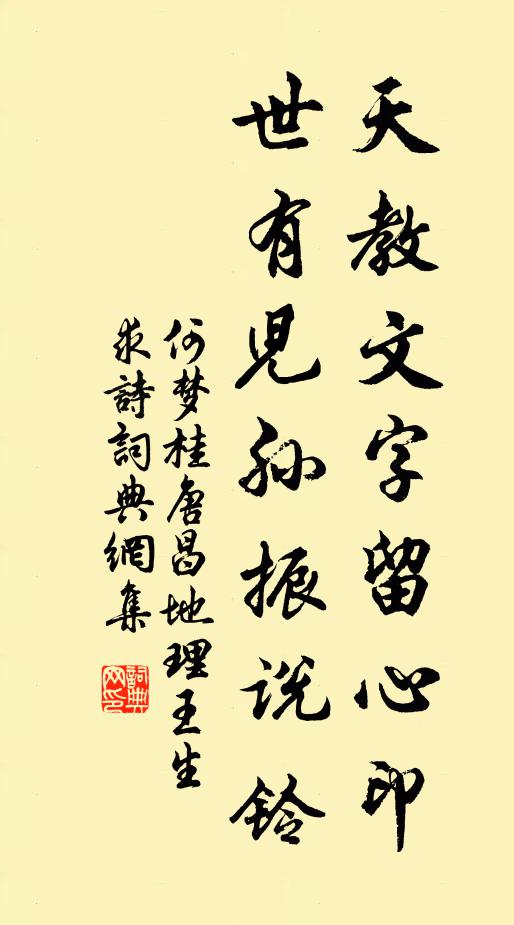 天教文字留心印
世有児孙振説鈴
何梦桂唐昌地理王生
求詩詞典網集
詞典
网印